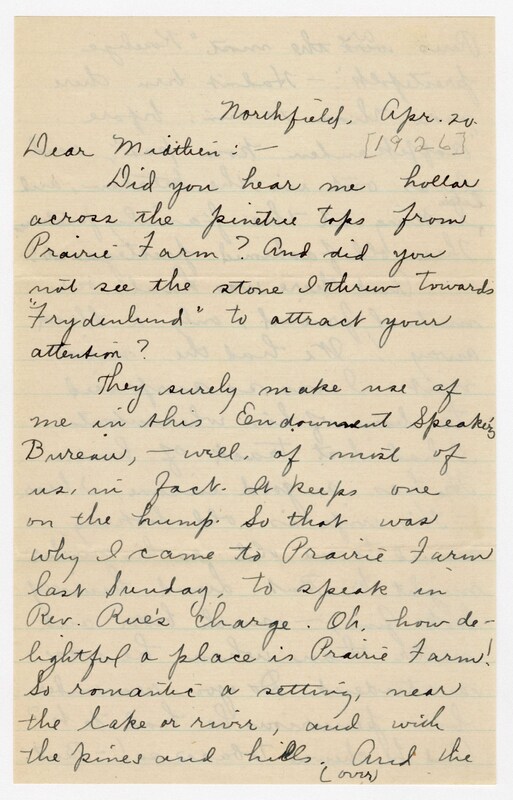 Northfield, Apr. 20.
[1926]
Dear Midtlien:—
Did you hear me hollar
across the pinetree tops from
Prairie Farm? And did you
not see the stone I threw towards
"Frydenlund" to attract your
attention?
They surely make use of
me in this Endowment Speakers
Bureau, — well, of most of
us, in fact. It keeps one
on the hump. So that was
why I came to Prairie Farm
last Sunday, to speak in
Rev. Rue's Charge. Oh, how de-
lightful a place is Prairie Farm!
So romantic a setting, near
the lake or river, and with
the pines and hills. And the
(over)